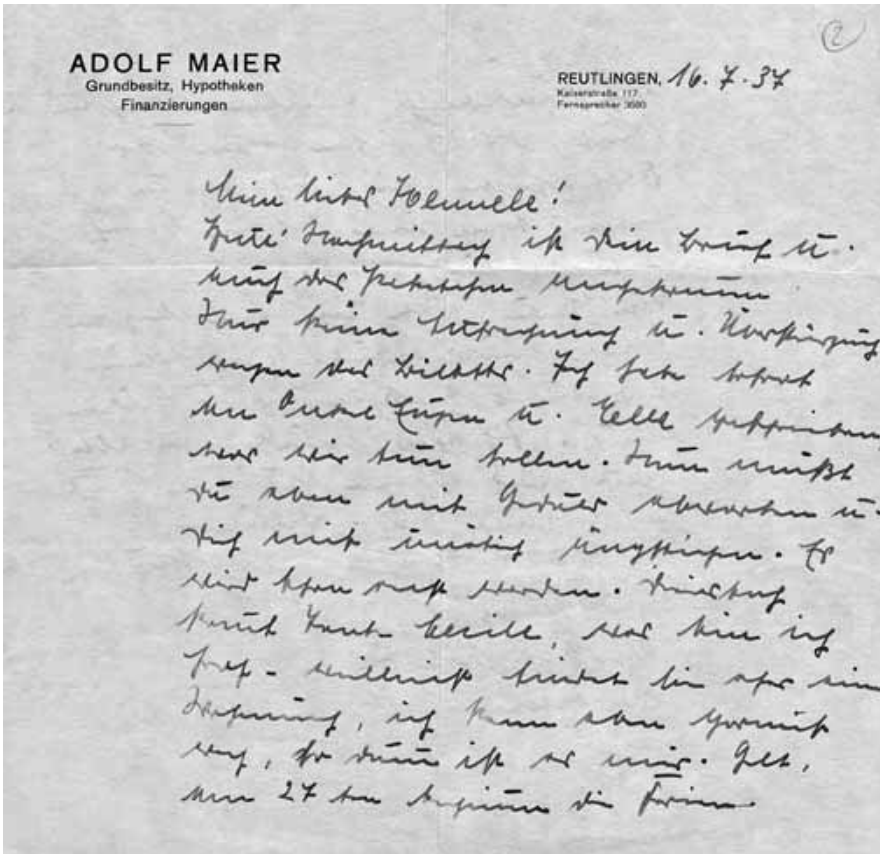 ②
ADOLF MAIER
Grundbesitz, Hypotheken
Finanzierungen
REUTLINGEN, 16.7.37
Kaiserstraße 117.
Fernsprecher 3580
Mein liebes Hannele!
Heute Nachmittag ist dein Brief u.
auch das angekommen
Nur keine Aufregung u. Überstürzung
wegen des Billetts. Ich habe sofort
an Onkel Eugen u. geschrieben
was wir tun sollen. Nun mußt
du eben mit Geduld abwarten u.
dich nicht unnötig ängstigen. Es
wird schon recht werden. Dienstag
kommt Tante Cecile, was bin ich
froh - vielleicht findet sie eher eine
Wohnung, ich kann eben garnicht
weg, so dumm ist es mir. Gelt,
am 27ten beginnen die Ferien.